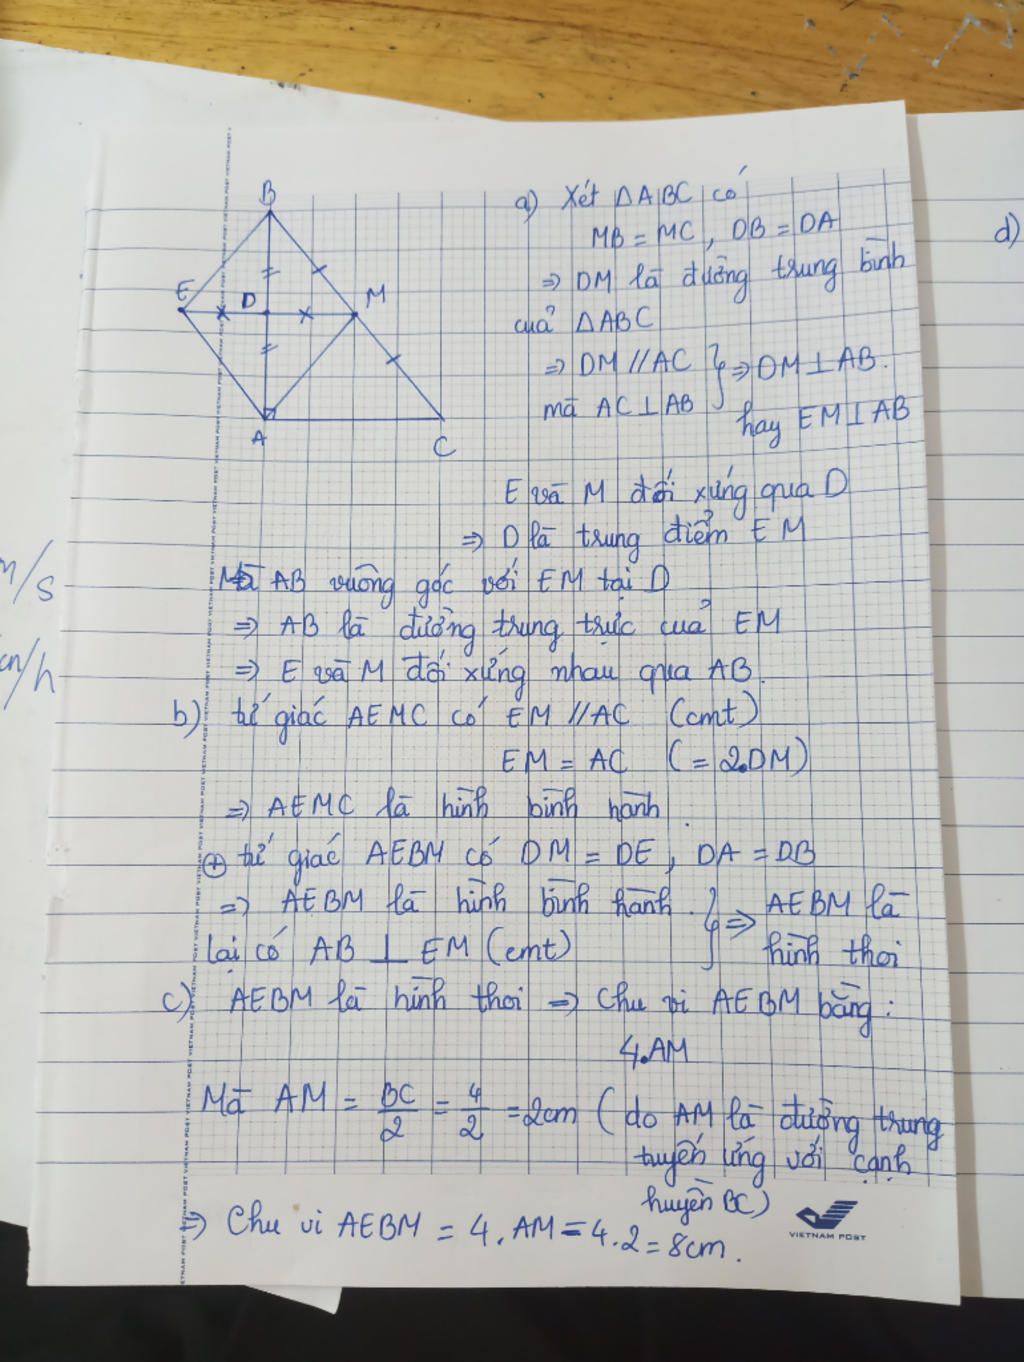 B
E
D
M
A
C
a) Xét ΔABC có
MB = MC, DB = DA
⇒ DM là đường trung bình
của ΔABC
⇒ DM // AC } ⇒ DM ⊥ AB.
mà AC ⊥ AB
hay EM ⊥ AB
E và M đối xứng qua D
⇒ D là trung điểm EM
Mà AB vuông góc với EM tại D
⇒ AB là đường trung trực của EM
⇒ E và M đối xứng nhau qua AB.
b) tứ giác AEMC có EM // AC (cmt)
EM = AC (= 2.DM)
⇒ AEMC là hình bình hành.
⊕ tứ giác AEBM có DM = DE, DA = DB
⇒ AEBM là hình bình hành. } ⇒ AEBM là
lại có AB ⊥ EM (cmt) hình thoi
c) AEBM là hình thoi ⇒ Chu vi AEBM bằng:
4.AM
Mà AM = BC/2 = 4/2 = 2cm (do AM là đường trung
tuyến ứng với cạnh
huyền BC)
⇒ Chu vi AEBM = 4.AM = 4.2 = 8cm.
VIETNAM POST
d)
m/s
km/h